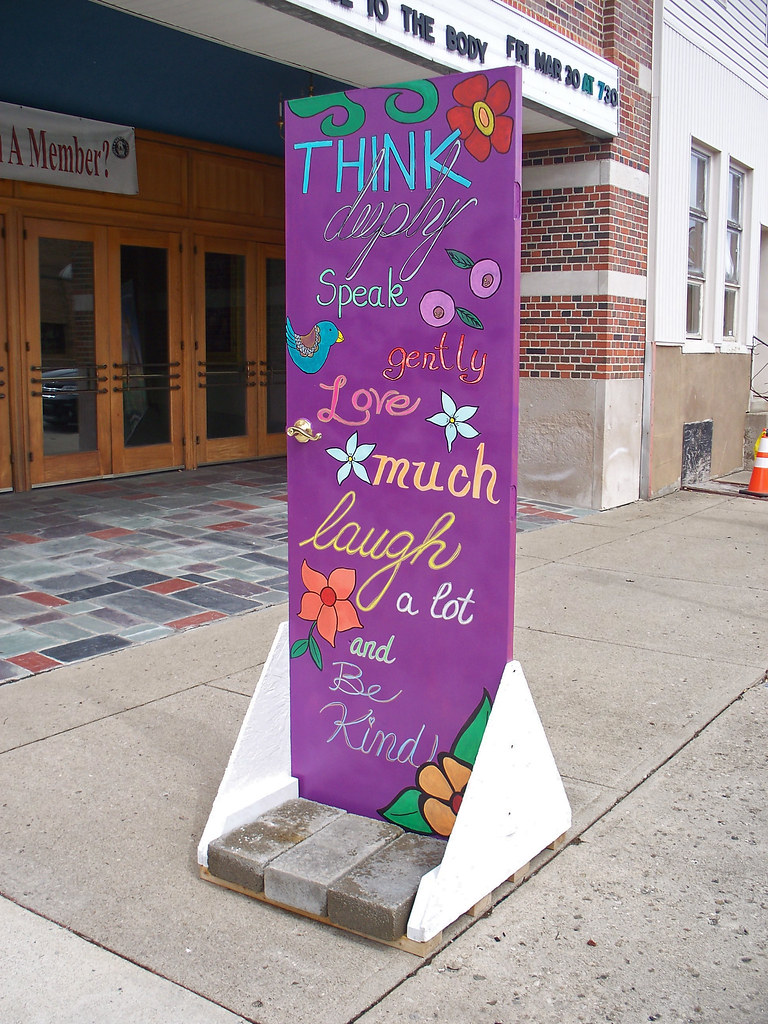 TO THE BODY FRI MAR 20 AT 730
A Member?
THINK
deeply
Speak
gently
Love
much
laugh
a lot
and
Be
Kind!